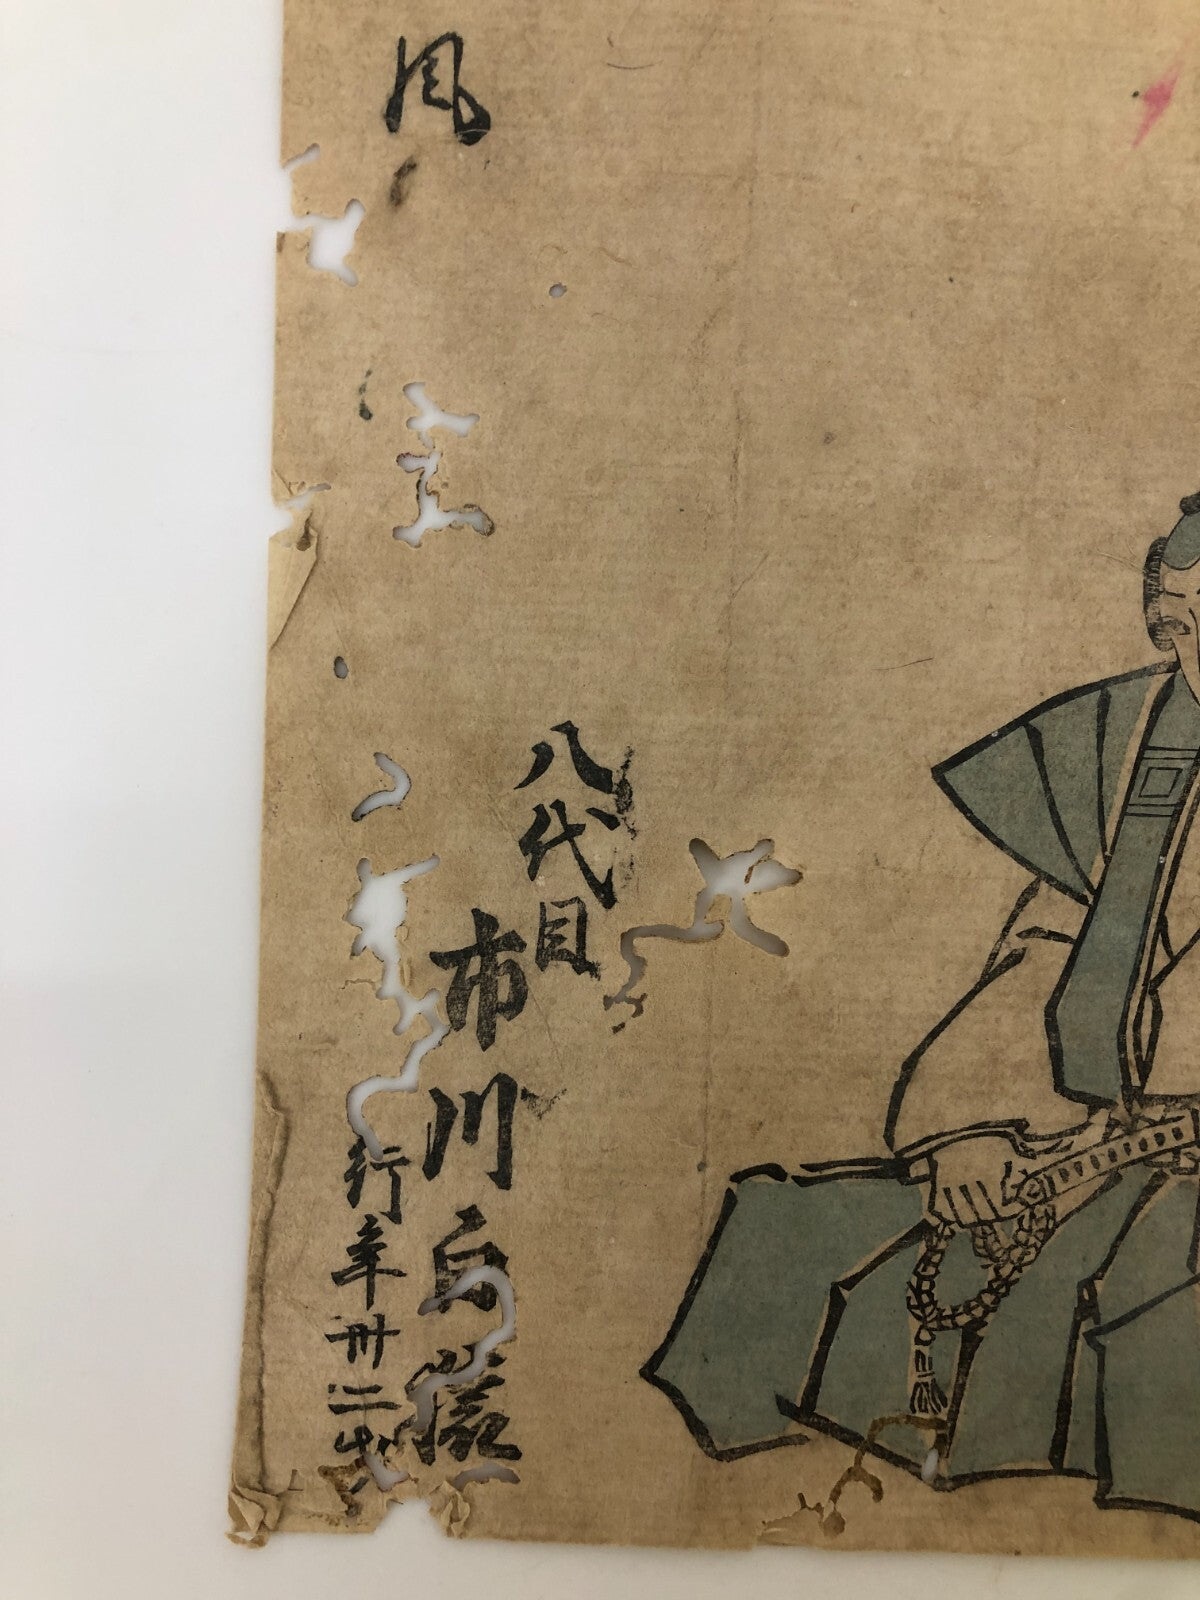 風
八代目
市川白猿
行年卅二才